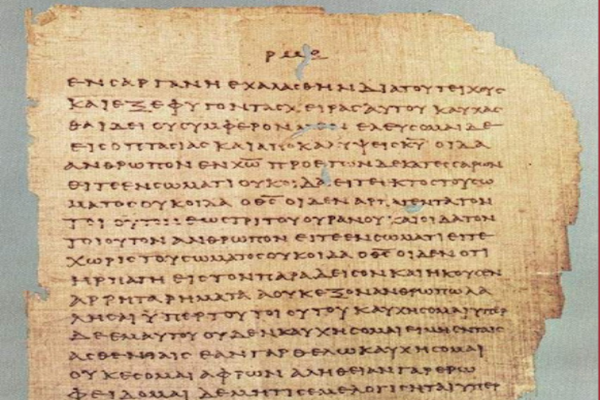 ΕΝ ϹΑΡΓΑΝΗ ΕΧΑΛΑϹΘΗΝ ΔΙΑ ΤΟΥ ΤΕΙΧΟΥϹ
ΚΑΙ ΕΞΕΦΥΓΟΝ ΤΑϹ ΧΕΙΡΑϹ ΑΥΤΟΥ ΚΑΥΧΑϹ
ΘΑΙ ΔΕΙ ΟΥ ϹΥΜΦΕΡΟΝ ΕΛΕΥϹΟΜΑΙ ΔΕ
ΕΙϹ ΟΠΤΑϹΙΑϹ ΚΑΙ ΑΠΟΚΑΛΥΨΕΙϹ Κ̅Υ̅ ΟΙΔΑ
ΑΝΘΡΩΠΟΝ ΕΝ Χ̅Ω̅ ΠΡΟ ΕΤΩΝ ΔΕΚΑΤΕϹϹΑΡΩΝ
ΕΙΤΕ ΕΝ ϹΩΜΑΤΙ ΟΥΚ ΟΙΔΑ ΕΙΤΕ ΕΚΤΟϹ ΤΟΥ ϹΩ
ΜΑΤΟϹ ΟΥΚ ΟΙΔΑ Ο Θ̅Ϲ̅ ΟΙΔΕΝ ΑΡΠΑΓΕΝΤΑ ΤΟΝ
ΤΟΙΟΥΤΟΝ ΕΩϹ ΤΡΙΤΟΥ ΟΥΡΑΝΟΥ ΚΑΙ ΟΙΔΑ ΤΟΝ
ΤΟΙΟΥΤΟΝ ΑΝΘΡΩΠΟΝ ΕΙΤΕ ΕΝ ϹΩΜΑΤΙ ΕΙΤΕ
ΧΩΡΙϹ ΤΟΥ ϹΩΜΑΤΟϹ ΟΥΚ ΟΙΔΑ Ο Θ̅Ϲ̅ ΟΙΔΕΝ ΟΤΙ
ΗΡΠΑΓΗ ΕΙϹ ΤΟΝ ΠΑΡΑΔΕΙϹΟΝ ΚΑΙ ΗΚΟΥϹΕΝ
ΑΡΡΗΤΑ ΡΗΜΑΤΑ Α ΟΥΚ ΕΞΟΝ ΑΝΘΡΩΠΩ ΛΑ
ΛΗϹΑΙ ΫΠΕΡ ΤΟΥ ΤΟΙΟΥΤΟΥ ΚΑΥΧΗϹΟΜΑΙ ΥΠΕΡ
ΔΕ ΕΜΑΥΤΟΥ ΟΥΔΕΝ ΚΑΥΧΗϹΟΜΑΙ ΕΙ ΜΗ ΕΝ ΤΑΙϹ
ΑϹΘΕΝΕΙΑΙϹ ΕΑΝ ΓΑΡ ΘΕΛΩ ΚΑΥΧΗϹΟΜΑΙ
ΟΥΚ ΕϹΟΜΑΙ ΑΦΡΩΝ ΑΛΗΘΕΙΑΝ ΓΑΡ ΕΡΩ
ΦΕΙΔΟΜΑΙ ΔΕ ΜΗ ΤΙϹ ΕΜΕ ΛΟΓΙϹΗΤΑΙ ΥΠΕΡ